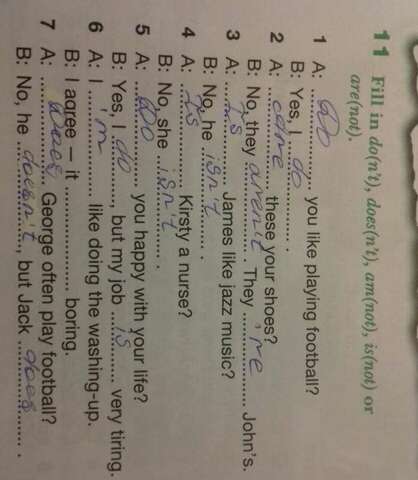 11 Fill in do(n't), does(n't), am(not), is(not) or
are(not).
1 A: Do you like playing football?
B: Yes, I do.
2 A: are these your shoes?
B: No, they aren't. They 're John's.
3 A: Is James like jazz music?
B: No, he isn't.
4 A: Is Kirsty a nurse?
B: No, she isn't.
5 A: Do you happy with your life?
B: Yes, I do, but my job is very tiring.
6 A: I 'm like doing the washing-up.
B: I agree – it ............ boring.
7 A: Does George often play football?
B: No, he doesn't, but Jack does.